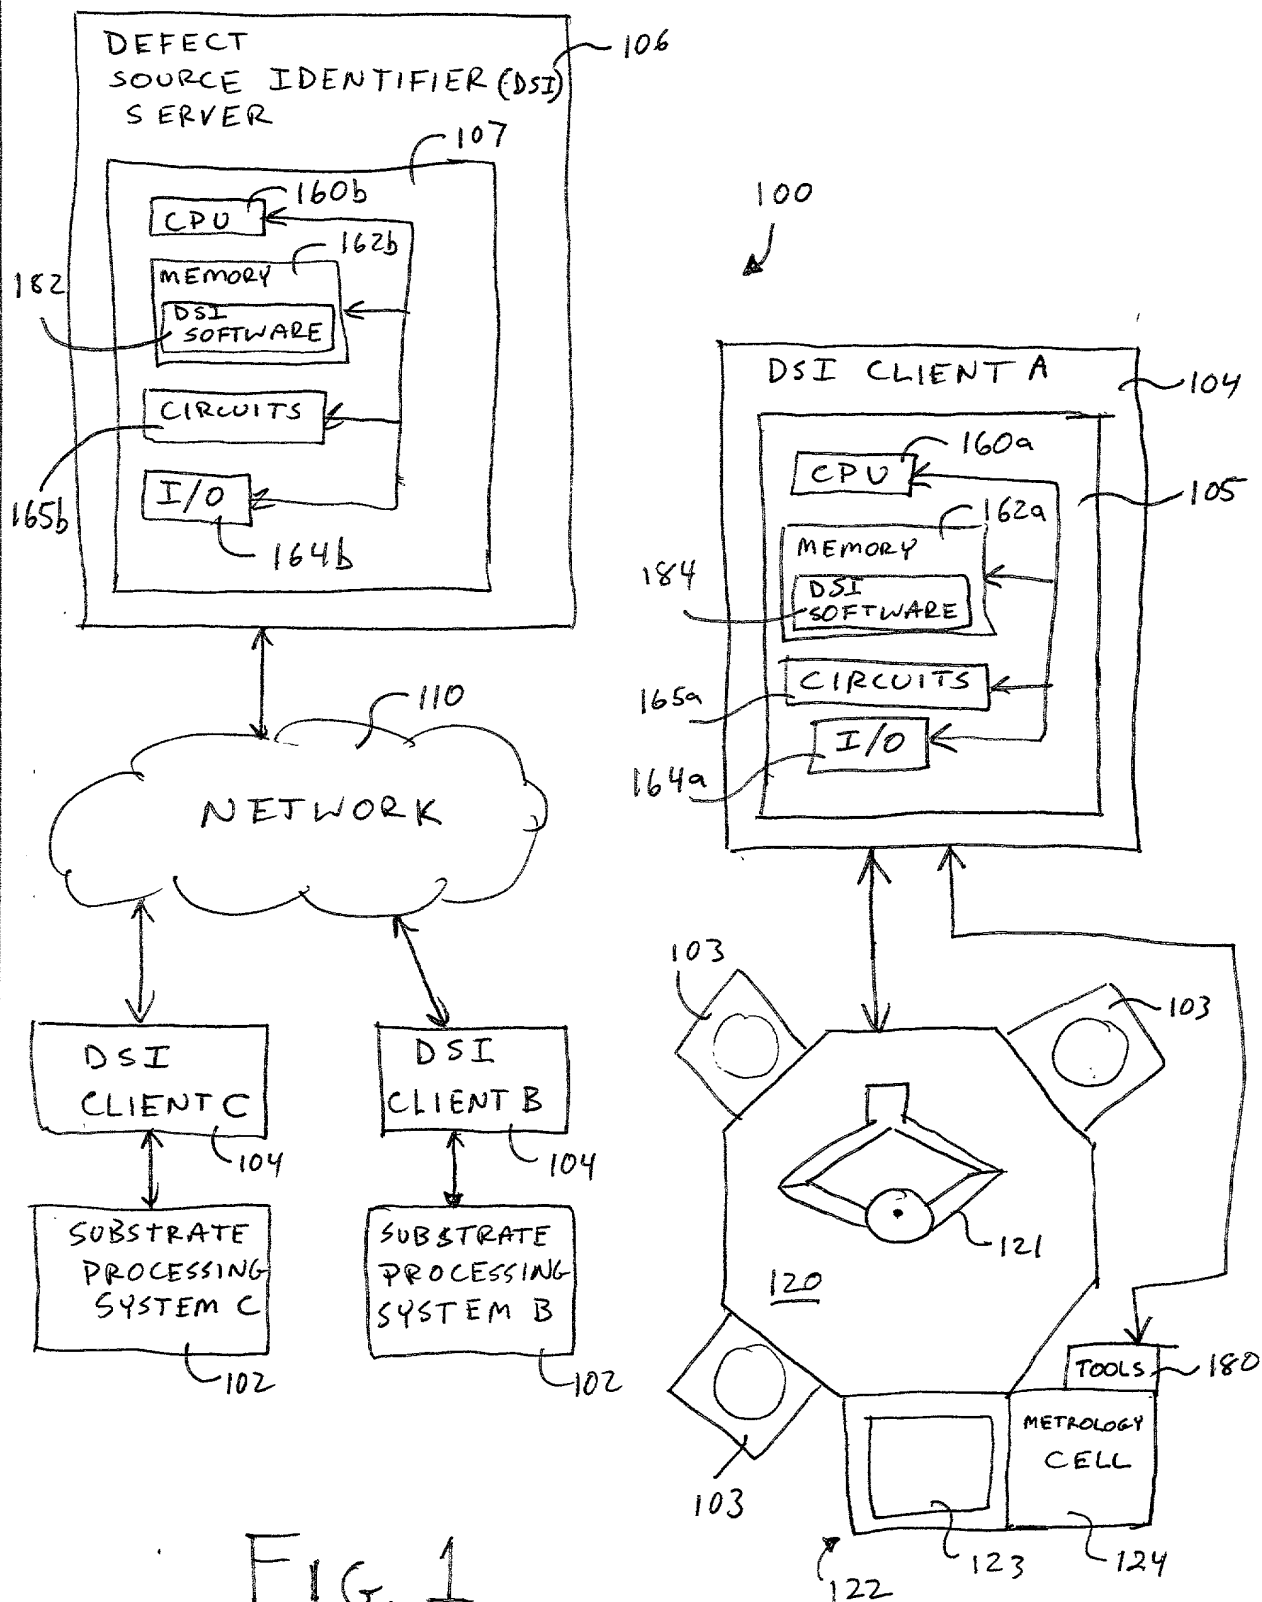 DEFECT
SOURCE IDENTIFIER (DSI)
SERVER
106
107
CPU
160b
MEMORY
162b
182
DSI
SOFTWARE
CIRCUITS
165b
I/O
164b
100
DSI CLIENT A
104
105
CPU
160a
MEMORY
162a
184
DSI
SOFTWARE
CIRCUITS
165a
I/O
164a
110
NETWORK
DSI
CLIENT C
104
DSI
CLIENT B
104
SUBSTRATE
PROCESSING
SYSTEM C
102
SUBSTRATE
PROCESSING
SYSTEM B
102
103
103
121
120
103
TOOLS
180
METROLOGY
CELL
122
123
124
FIG. 1